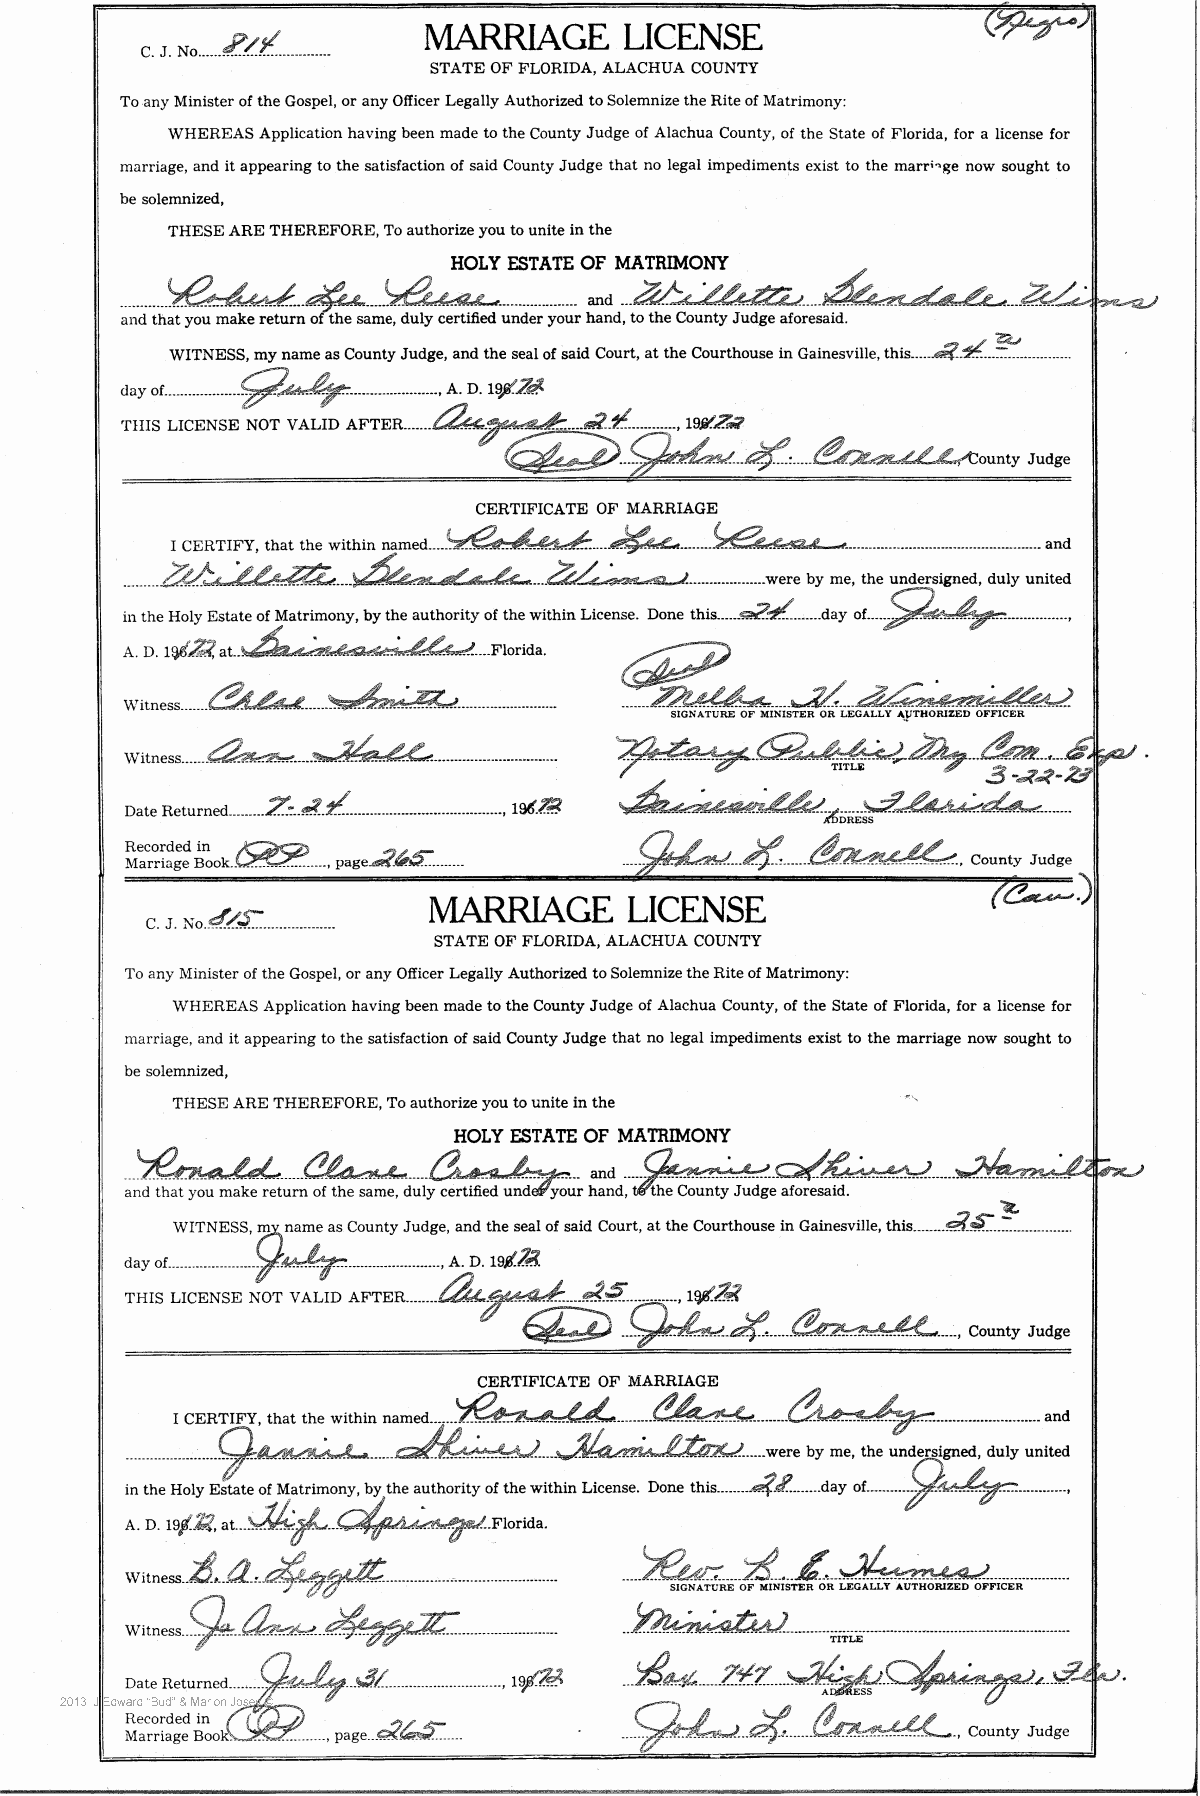 (Negro)
C. J. No. 814 MARRIAGE LICENSE
STATE OF FLORIDA, ALACHUA COUNTY
To any Minister of the Gospel, or any Officer Legally Authorized to Solemnize the Rite of Matrimony:
WHEREAS Application having been made to the County Judge of Alachua County, of the State of Florida, for a license for
marriage, and it appearing to the satisfaction of said County Judge that no legal impediments exist to the marriage now sought to
be solemnized,
THESE ARE THEREFORE, To authorize you to unite in the
HOLY ESTATE OF MATRIMONY
Robert Lee Reese and Willette Glendale Wims
and that you make return of the same, duly certified under your hand, to the County Judge aforesaid.
WITNESS, my name as County Judge, and the seal of said Court, at the Courthouse in Gainesville, this 24th
day of July, A. D. 1972
THIS LICENSE NOT VALID AFTER August 24, 1972
(Seal) John L. Connell, County Judge
CERTIFICATE OF MARRIAGE
I CERTIFY, that the within named Robert Lee Reese and
Willette Glendale Wims were by me, the undersigned, duly united
in the Holy Estate of Matrimony, by the authority of the within License. Done this 24 day of July,
A. D. 1972, at Gainesville Florida.
(Seal)
Witness Chloe Smith Melba H. Winemiller
SIGNATURE OF MINISTER OR LEGALLY AUTHORIZED OFFICER
Witness Ann Hall Notary Public, My Com. Exp.
TITLE 3-22-73
Date Returned 7-24, 1972 Gainesville, Florida
ADDRESS
Recorded in
Marriage Book PP, page 265 John L. Connell, County Judge
(Cau.)
C. J. No. 815 MARRIAGE LICENSE
STATE OF FLORIDA, ALACHUA COUNTY
To any Minister of the Gospel, or any Officer Legally Authorized to Solemnize the Rite of Matrimony:
WHEREAS Application having been made to the County Judge of Alachua County, of the State of Florida, for a license for
marriage, and it appearing to the satisfaction of said County Judge that no legal impediments exist to the marriage now sought to
be solemnized,
THESE ARE THEREFORE, To authorize you to unite in the
HOLY ESTATE OF MATRIMONY
Ronald Clane Crosby and Jannie Shiver Hamilton
and that you make return of the same, duly certified under your hand, to the County Judge aforesaid.
WITNESS, my name as County Judge, and the seal of said Court, at the Courthouse in Gainesville, this 25th
day of July, A. D. 1972
THIS LICENSE NOT VALID AFTER August 25, 1972
(Seal) John L. Connell, County Judge
CERTIFICATE OF MARRIAGE
I CERTIFY, that the within named Ronald Clane Crosby and
Jannie Shiver Hamilton were by me, the undersigned, duly united
in the Holy Estate of Matrimony, by the authority of the within License. Done this 28 day of July,
A. D. 1972, at High Springs Florida.
Witness B. A. Leggett Rev. B. E. Humes
SIGNATURE OF MINISTER OR LEGALLY AUTHORIZED OFFICER
Witness Jo Ann Leggett Minister
TITLE
Date Returned July 31, 1972 Box 747 High Springs, Fla.
ADDRESS
2013 J Edward "Bud" & Marion
Recorded in
Marriage Book PP, page 265 John L. Connell, County Judge